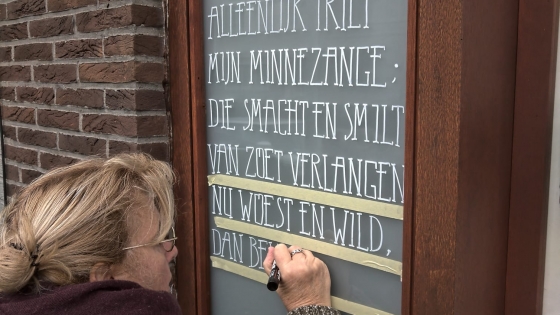 ALLEENLIJK TRILT
MIJN MINNEZANGE;
DIE SMACHT EN SMILT
VAN ZOET VERLANGEN
NU WOEST EN WILD,
DAN BE